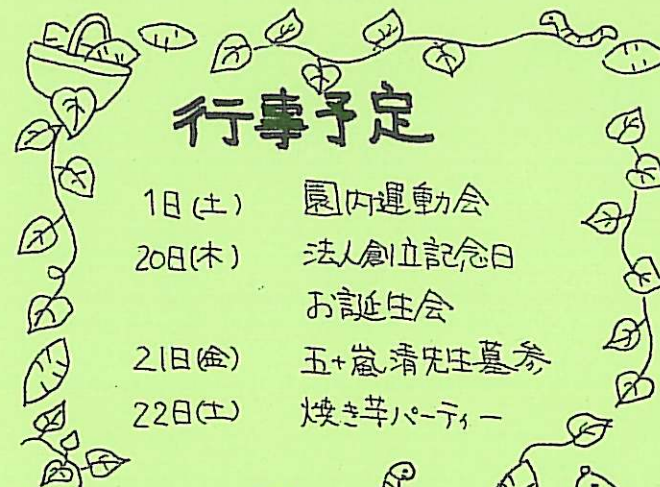 行事予定
1日(土) 園内運動会
20日(木) 法人創立記念日
お誕生会
21日(金) 五十嵐清先生墓参
22日(土) 焼き芋パーティー